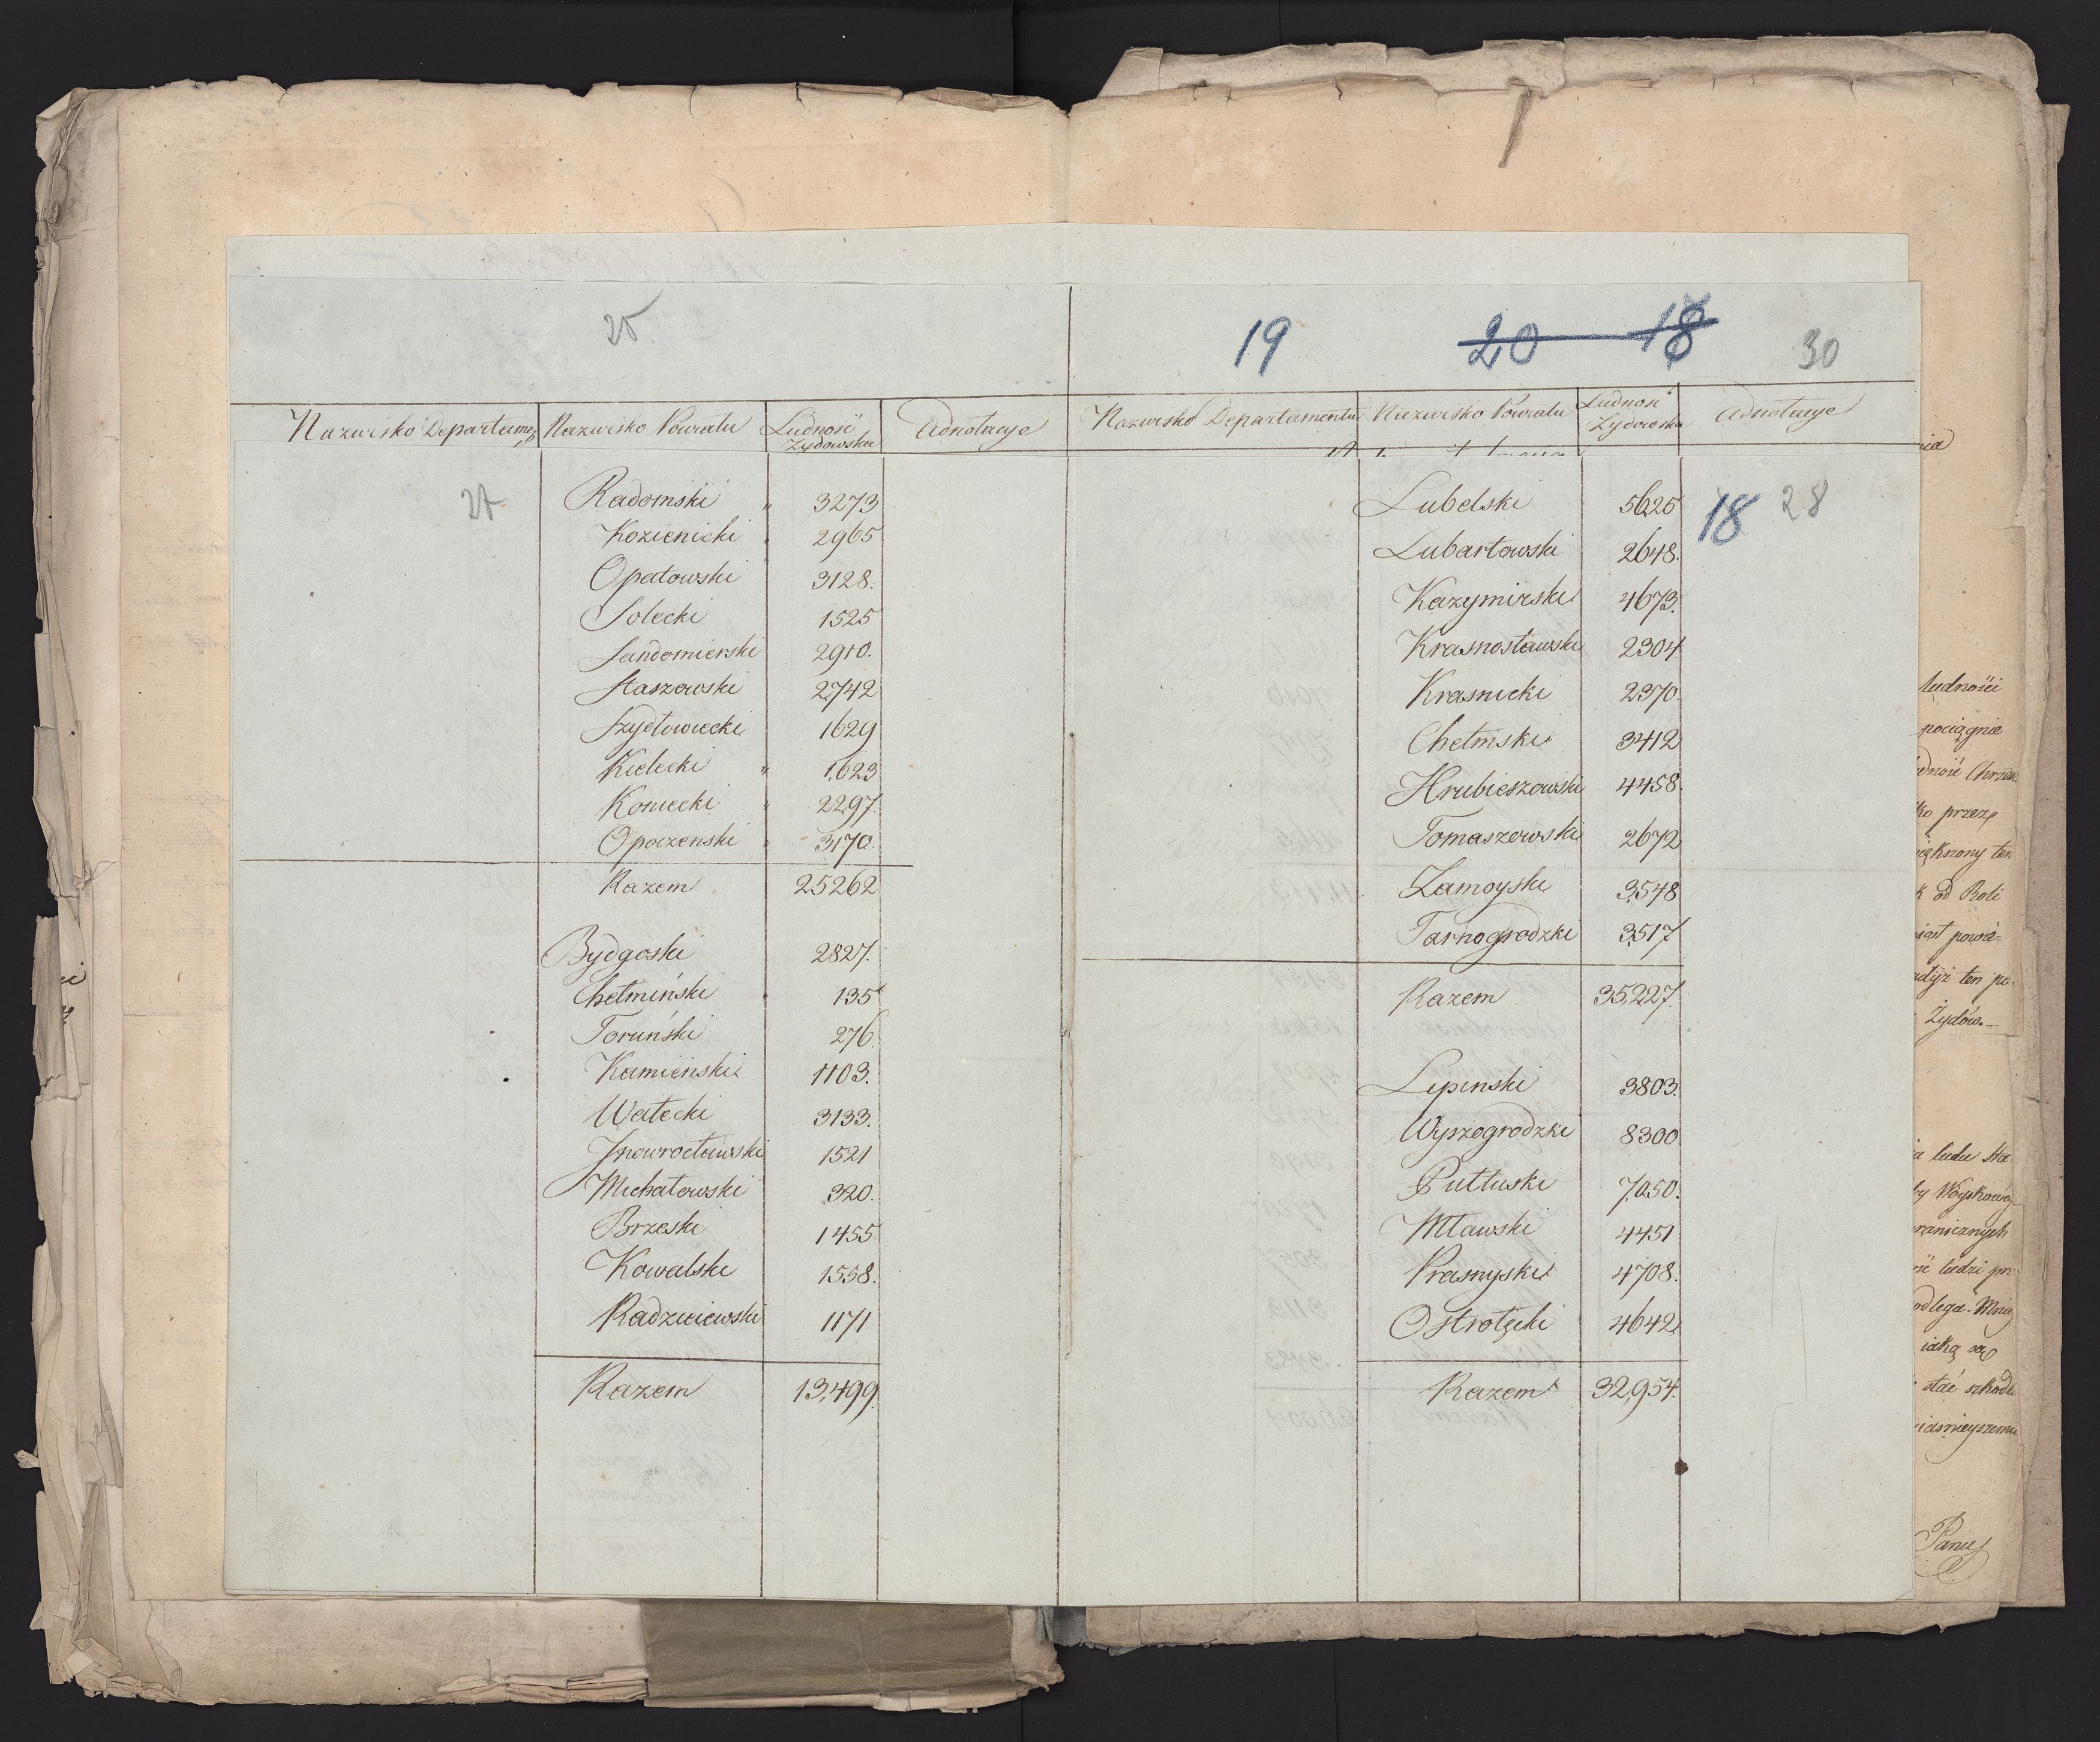 25.
Nazwisko Departamen. Nazwisko Powiatu Ludność Żydowska Adnotacye
27.
Radomski " 3273
Kozienicki " 2965
Opatowski 3128.
Solecki 1525
Sandomierski 2910.
Staszowski 2742
Szydłowiecki 1629
Kielecki " 1,623
Koniecki " 2297.
Opoczenski " 3170.
Razem 25262
Bydgoski 2827.
Chełmiński " 135
Toruński 276.
Kamieński 1103.
Wałecki 3133.
Jnowrocławski 1521
Michałowski 320.
Brzeski 1455
Kowalski 1558.
Radzieiewski 1171
Razem 13,499.
19 20 18 30
Nazwisko Departamentu Nazwisko Powiatu Ludność Żydowska Adnotacye
Lubelski 5625 18 28
Lubartowski 2648.
Kazymirski 4673.
Krasnostawski 2304
Krasnicki 2370.
Chełmski 3412
Hrubieszowski 4458.
Tomaszowski 2672
Zamoyski 3,548
Tarnogrodzki 3,517
Razem 35,227.
Lipinski 3803.
Wyszogrodzki 8300.
Pułtuski 7,050.
Mławski 4451
Prasnyski 4708.
Ostrołęcki 4642
Razem 32,954.
ludności
pociągnie
przez
ten
od Roli
ten po-
Żydów.—
ludu
ludzi
iaką są
stać szkoda
Panu